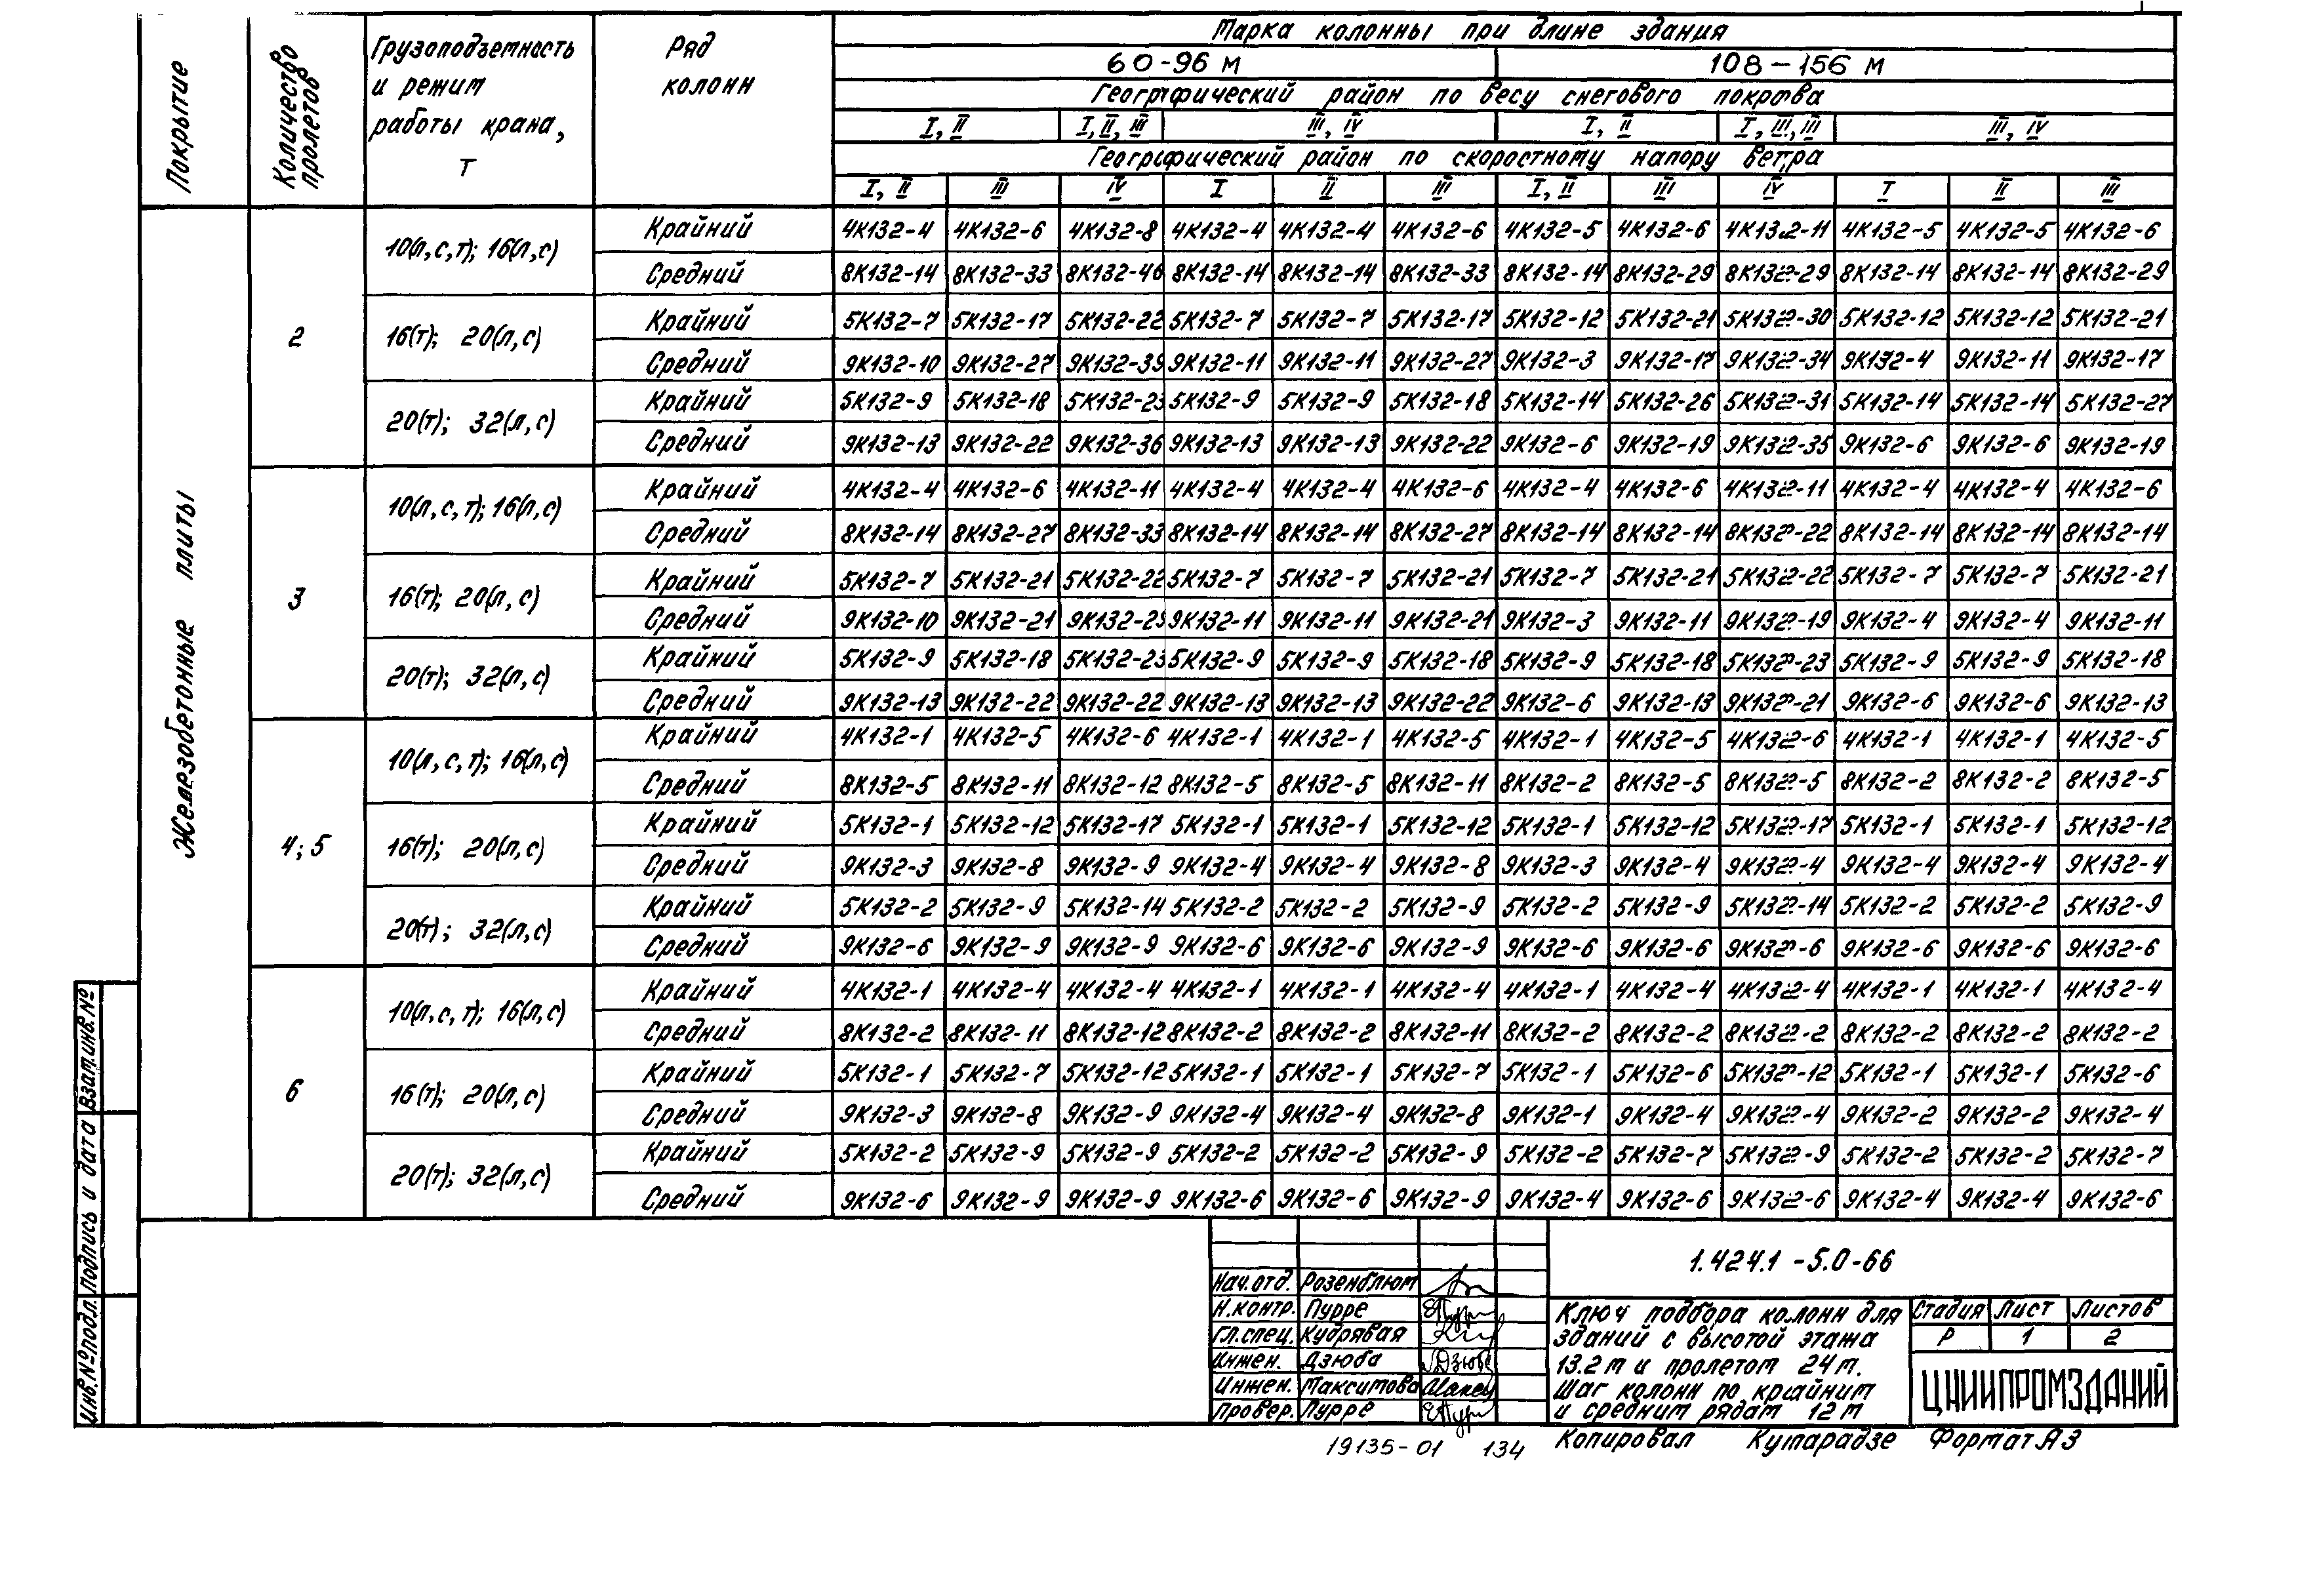 Марка колонны при длине здания
Покрытие
Количество пролетов
Грузоподъемность и режим работы крана, т
Ряд колонн
60-96 м 108-156 м
Географический район по весу снегового покрова
I, II I, II, III III, IV I, II I, III, III III, IV
Географический район по скоростному напору ветра
I, II III IV I II III I, II III IV I II III
Железобетонные плиты
2
10(л,с,т); 16(л,с)
Крайний 4К132-4 4К132-6 4К132-8 4К132-4 4К132-4 4К132-6 4К132-5 4К132-6 4К132-11 4К132-5 4К132-5 4К132-6
Средний 8К132-14 8К132-33 8К132-46 8К132-14 8К132-14 8К132-33 8К132-14 8К132-29 8К132-29 8К132-14 8К132-14 8К132-29
16(т); 20(л,с)
Крайний 5К132-7 5К132-17 5К132-22 5К132-7 5К132-7 5К132-17 5К132-12 5К132-21 5К132-30 5К132-12 5К132-12 5К132-21
Средний 9К132-10 9К132-27 9К132-39 9К132-11 9К132-11 9К132-27 9К132-3 9К132-17 9К132-34 9К132-4 9К132-11 9К132-17
20(т); 32(л,с)
Крайний 5К132-9 5К132-18 5К132-23 5К132-9 5К132-9 5К132-18 5К132-14 5К132-26 5К132-31 5К132-14 5К132-14 5К132-27
Средний 9К132-13 9К132-22 9К132-36 9К132-13 9К132-13 9К132-22 9К132-6 9К132-19 9К132-35 9К132-6 9К132-6 9К132-19
3
10(л,с,т); 16(л,с)
Крайний 4К132-4 4К132-6 4К132-11 4К132-4 4К132-4 4К132-6 4К132-4 4К132-6 4К132-11 4К132-4 4К132-4 4К132-6
Средний 8К132-14 8К132-27 8К132-33 8К132-14 8К132-14 8К132-27 8К132-14 8К132-14 8К132-22 8К132-14 8К132-14 8К132-14
16(т); 20(л,с)
Крайний 5К132-7 5К132-21 5К132-22 5К132-7 5К132-7 5К132-21 5К132-7 5К132-21 5К132-22 5К132-7 5К132-7 5К132-21
Средний 9К132-10 9К132-21 9К132-29 9К132-11 9К132-11 9К132-21 9К132-3 9К132-11 9К132-19 9К132-4 9К132-4 9К132-11
20(т); 32(л,с)
Крайний 5К132-9 5К132-18 5К132-23 5К132-9 5К132-9 5К132-18 5К132-9 5К132-18 5К132-23 5К132-9 5К132-9 5К132-18
Средний 9К132-13 9К132-22 9К132-22 9К132-13 9К132-13 9К132-22 9К132-6 9К132-13 9К132-21 9К132-6 9К132-6 9К132-13
4; 5
10(л,с,т); 16(л,с)
Крайний 4К132-1 4К132-5 4К132-6 4К132-1 4К132-1 4К132-5 4К132-1 4К132-5 4К132-6 4К132-1 4К132-1 4К132-5
Средний 8К132-5 8К132-11 8К132-12 8К132-5 8К132-5 8К132-11 8К132-2 8К132-5 8К132-5 8К132-2 8К132-2 8К132-5
16(т); 20(л,с)
Крайний 5К132-1 5К132-12 5К132-17 5К132-1 5К132-1 5К132-12 5К132-1 5К132-12 5К132-17 5К132-1 5К132-1 5К132-12
Средний 9К132-3 9К132-8 9К132-9 9К132-4 9К132-4 9К132-8 9К132-3 9К132-4 9К132-4 9К132-4 9К132-4 9К132-4
20(т); 32(л,с)
Крайний 5К132-2 5К132-9 5К132-14 5К132-2 5К132-2 5К132-9 5К132-2 5К132-9 5К132-14 5К132-2 5К132-2 5К132-9
Средний 9К132-6 9К132-9 9К132-9 9К132-6 9К132-6 9К132-9 9К132-6 9К132-6 9К132-6 9К132-6 9К132-6 9К132-6
6
10(л,с,т); 16(л,с)
Крайний 4К132-1 4К132-4 4К132-4 4К132-1 4К132-1 4К132-4 4К132-1 4К132-4 4К132-4 4К132-1 4К132-1 4К132-4
Средний 8К132-2 8К132-11 8К132-12 8К132-2 8К132-2 8К132-11 8К132-2 8К132-2 8К132-2 8К132-2 8К132-2 8К132-2
16(т); 20(л,с)
Крайний 5К132-1 5К132-7 5К132-12 5К132-1 5К132-1 5К132-7 5К132-1 5К132-6 5К132-12 5К132-1 5К132-1 5К132-6
Средний 9К132-3 9К132-8 9К132-9 9К132-4 9К132-4 9К132-8 9К132-1 9К132-4 9К132-4 9К132-2 9К132-2 9К132-4
20(т); 32(л,с)
Крайний 5К132-2 5К132-9 5К132-9 5К132-2 5К132-2 5К132-9 5К132-2 5К132-7 5К132-9 5К132-2 5К132-2 5К132-7
Средний 9К132-6 9К132-9 9К132-9 9К132-6 9К132-6 9К132-9 9К132-4 9К132-6 9К132-6 9К132-4 9К132-4 9К132-6
Инв.№ подл. Подпись и дата Взам.инв.№
1.424.1-5.0-66
Нач.отд. Розенблюм
Н.контр. Пурре
Гл.спец. Кудрявая
Инжен. Дзюба
Инжен. Максимова
Провер. Пурре
Ключ подбора колонн для
зданий с высотой этажа
13.2 м и пролетом 24 м.
Шаг колонн по крайним
и средним рядам 12 м
Стадия Лист Листов
Р 1 2
ЦНИИПРОМЗДАНИЙ
19135-01 134 Копировал Кумарадзе Формат А3